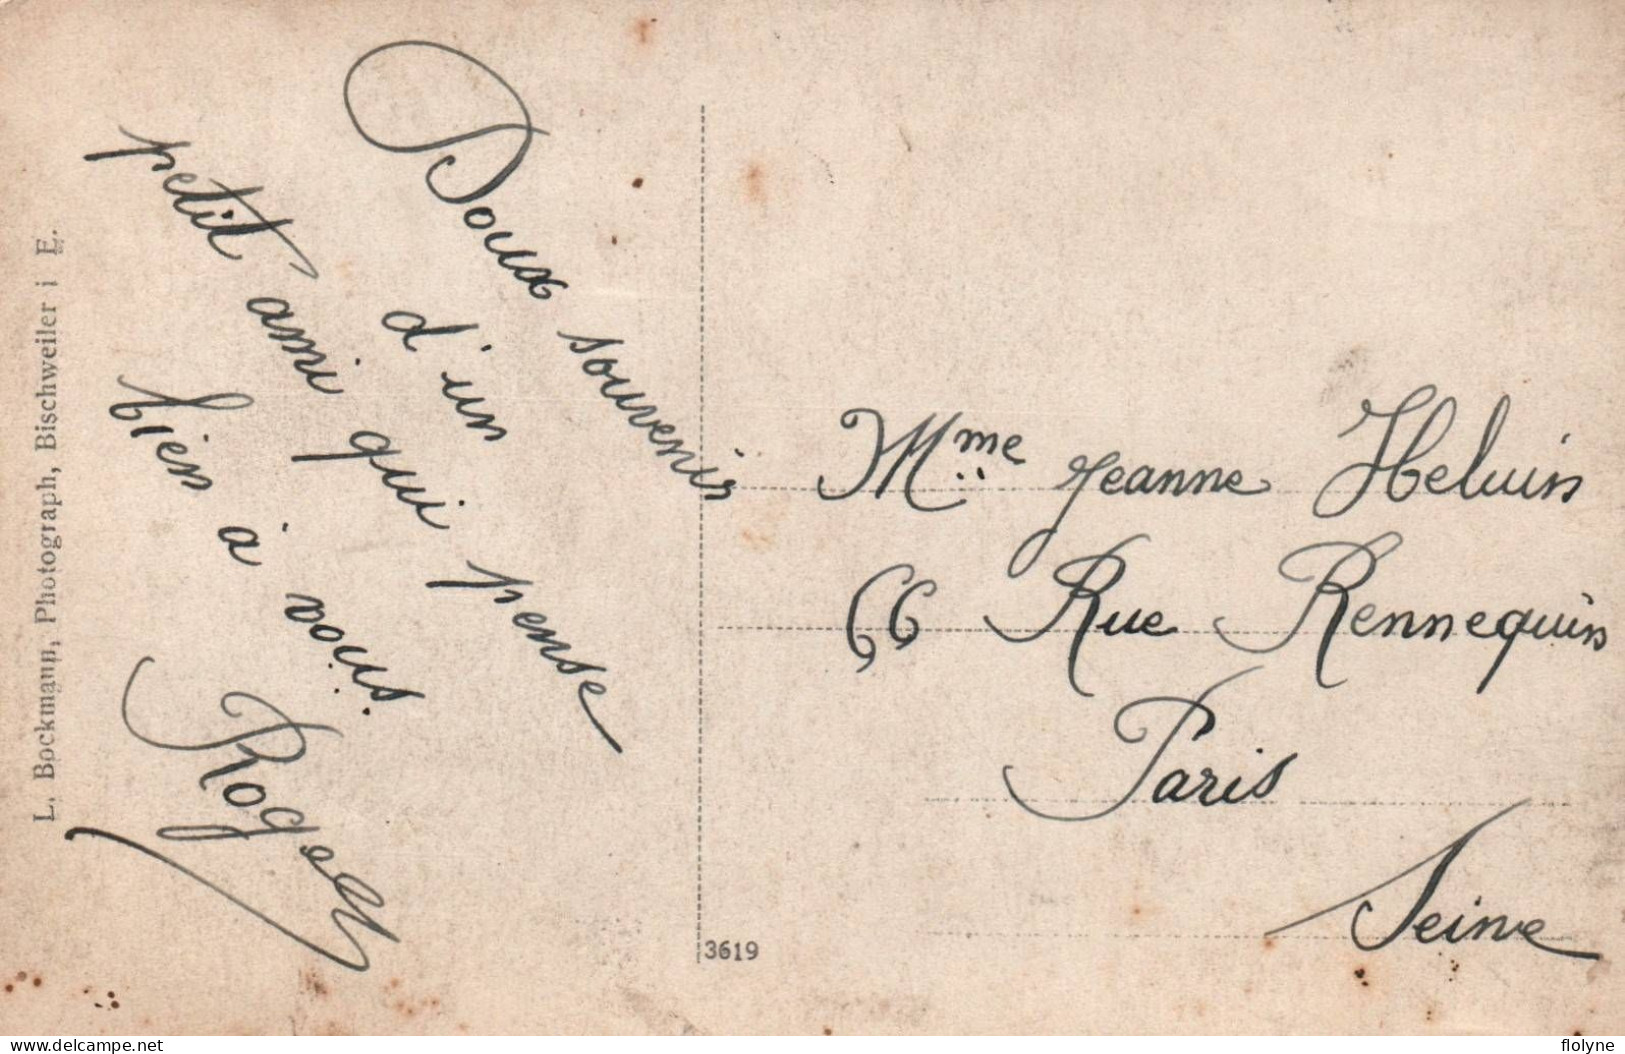 Doux souvenir
d'un
petit ami qui pense
bien à vous.
Roger
Mme Jeanne Heluin
66 Rue Rennequin
Paris
Seine
L. Bockmann, Photograph, Bischweiler i E.
3619
delcampe.net
flolyne